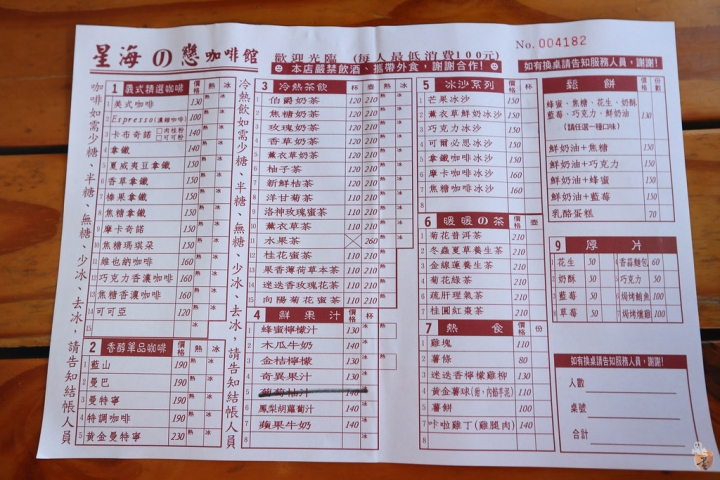 星海の戀咖啡館
歡迎光臨 (每人最低消費100元)
No. 004182
本店嚴禁飲酒、攜帶外食,謝謝合作!
如有換桌請告知服務人員,謝謝!
咖啡如需少糖、半糖、無糖、少冰、去冰,請告知結帳人員
1 義式精選咖啡 價格 熱 冰
1 美式咖啡 130 熱 冰
2 Espresso(濃縮咖啡) 100
3 卡布奇諾 □肉桂粉 □可可粉 140
4 拿鐵 140
5 夏威夷豆拿鐵 150
6 香草拿鐵 150
7 榛果拿鐵 150
8 焦糖拿鐵 150
9 摩卡奇諾 150
10 焦糖瑪琪朵 150
11 維也納咖啡 160
12 巧克力香濃咖啡 160
13 焦糖香濃咖啡 160
14 可可亞 120
15
2 香醇單品咖啡 價格 熱 冰
1 藍山 190 熱 冰
2 曼巴 190 熱 冰
3 曼特寧 190 熱 冰
4 特調咖啡 190 熱 冰
5 黃金曼特寧 230 熱 冰
冷熱飲如需少糖、半糖、無糖、少冰、去冰,請告知結帳人員
3 冷熱茶飲 杯 壺 熱 冰
1 伯爵奶茶 120 210
2 焦糖奶茶 120 210
3 玫瑰奶茶 120 210
4 香草奶茶 120 210
5 薰衣草奶茶 120 210
6 柚子茶 120 210
7 新鮮桔茶 120 210
8 洋甘菊茶 110 210
9 洛神玫瑰蜜茶 110 210
10 薰衣草茶 110 210
11 水果茶 260
12 桂花蜜茶 110 210
13 果香薄荷草本茶 110 210
14 迷迭香玫瑰花茶 110 210
15 向陽菊花蜜茶 110 210
4 鮮果汁 價格 杯
1 蜂蜜檸檬汁 130 冰
2 木瓜牛奶 140 冰
3 金桔檸檬 130 冰
4 奇異果汁 130 冰
5 葡萄柚汁 140 冰
6 鳳梨胡蘿蔔汁 140 冰
7 蘋果牛奶 140 冰
5 冰沙系列 價格 杯
1 芒果冰沙 150
2 薰衣草鮮奶冰沙 150
3 巧克力冰沙 150
4 可爾必思冰沙 150
5 拿鐵咖啡冰沙 150
6 摩卡咖啡冰沙 160
7 焦糖咖啡冰沙 160
8
6 暖暖の茶 價格 壺
1 菊花普洱茶 210
2 冬蟲夏草養生茶 210
3 金線蓮養生茶 210
4 菊花綠茶 210
5 疏肝理氣茶 210
6 桂圓紅棗茶 210
7 熱食 價格 份
1 雞塊 110
2 薯條 80
3 迷迭香檸檬雞柳 130
4 黃金薯球(甜,內餡芋泥) 110
5 薯餅 100
6 咔啦雞丁(雞腿肉) 140
7
8
鬆餅 價格 份數
蜂蜜、焦糖、花生、奶酥
藍莓、巧克力、鮮奶油
(請任選一種口味) 130
鮮奶油+焦糖
鮮奶油+巧克力
鮮奶油+蜂蜜 150
鮮奶油+藍莓
乳酪蛋糕 70
9 厚片
1 花生 50
2 奶酥 50
3 藍莓 50
4 草莓 50
5 香蒜麵包 60
6 巧克力 50
7 焗烤鮪魚 100
8 焗烤燻雞 100
如有換桌請告知服務人員,謝謝!
人數
桌號
合計